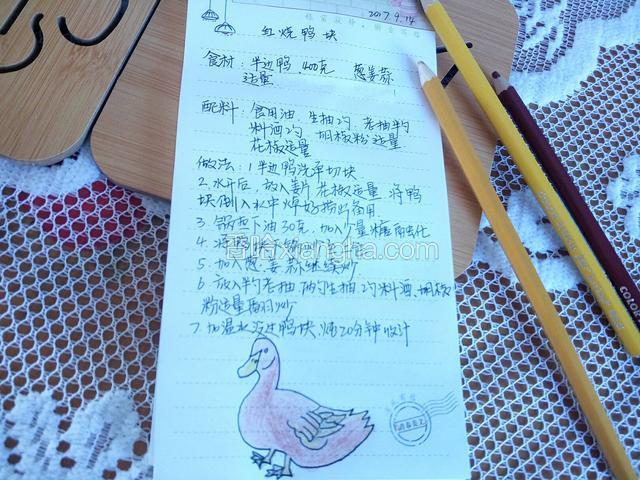 2017.9.14
红烧鸭块
食材：半边鸭.400克 葱姜蒜
适量
配料：食用油.生抽2勺.老抽半勺
料酒2勺.胡椒粉适量
花椒适量
做法：1半边鸭洗净切块
2.水开后.放入姜片花椒适量 将鸭
块倒入水中焯好捞出备用
3 锅西下油30克.加入少量糖
4
5 加入葱.姜.蒜继续炒
6 放入半勺老抽 两勺生抽 2勺料酒.胡椒
粉适量
7.加温水没过鸭块.烧20分钟收汁